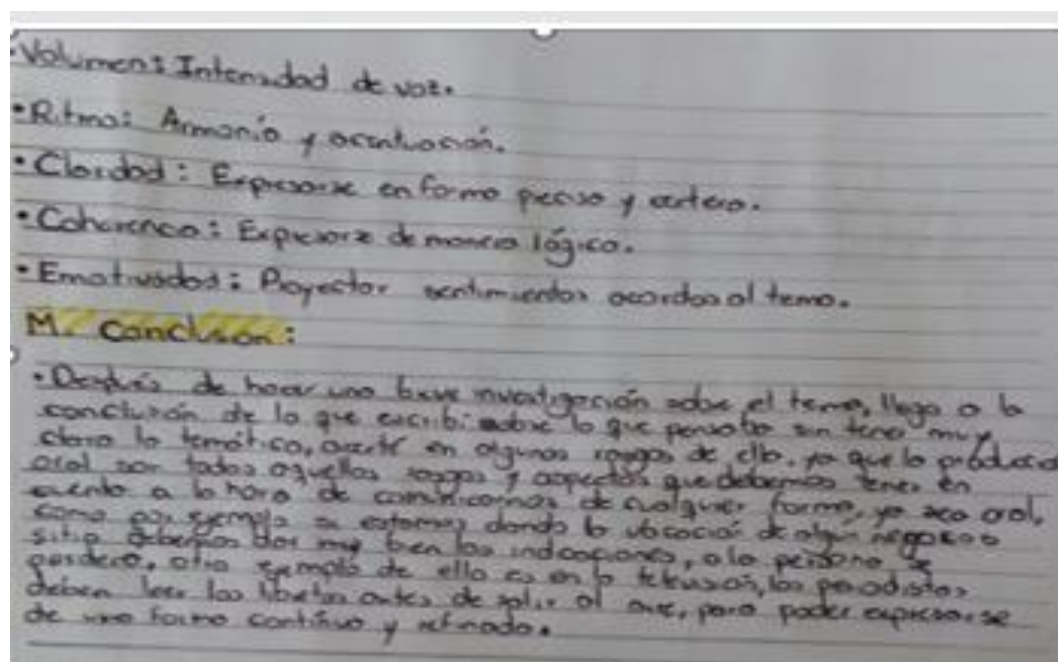 •Volumen: Intensidad de voz.
•Ritmo: Armonía y acentuación.
•Claridad: Expresarse en forma precisa y certera.
•Coherencia: Expresarse de manera lógica.
•Emotividad: Proyectar sentimientos acordes al tema.
M. Conclusión:
•Después de hacer una breve investigación sobre el tema, llego a la
conclusión de lo que escribí sobre lo que pensaba sin tener muy
clara la temática, acerté en algunos rasgos de ella, ya que la producción
oral son todos aquellos rasgos y aspectos que debemos tener en
cuenta a la hora de comunicarnos de cualquier forma, ya sea oral,
como por ejemplo si estamos dando la ubicación de algún negocio o
sitio debemos dar muy bien las indicaciones, o la persona se
perderá, otro ejemplo de ello es en la televisión, los periodistas
deben leer los libretos antes de salir al aire, para poder expresarse
de una forma continua y refinada.